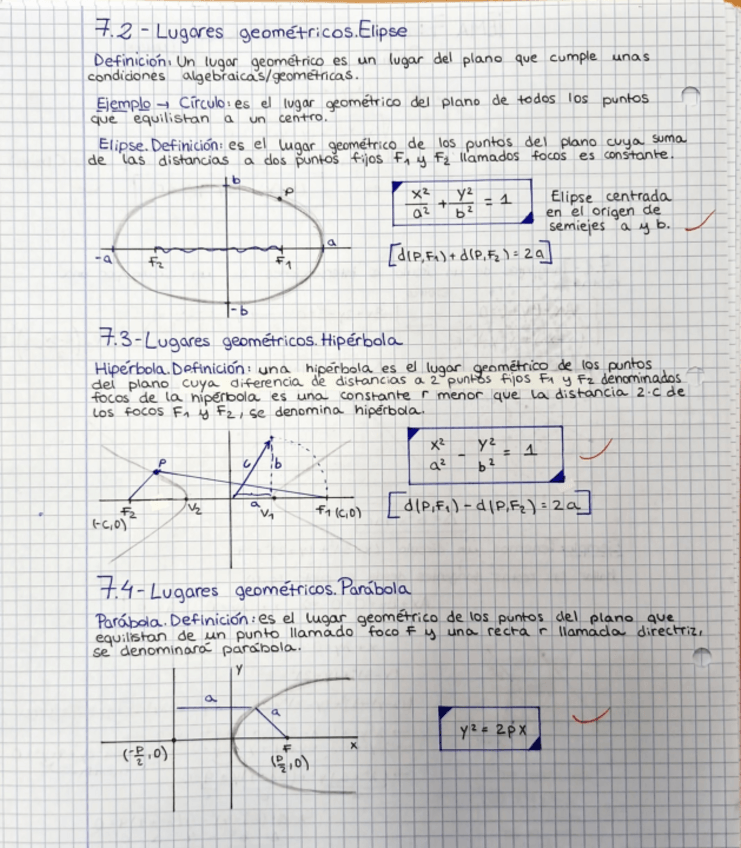 7.2 - Lugares geométricos. Elipse
Definición: Un lugar geométrico es un lugar del plano que cumple unas
condiciones algebraicas/geométricas.
Ejemplo → Círculo: es el lugar geométrico del plano de todos los puntos
que equilistan a un centro.
Elipse. Definición: es el lugar geométrico de los puntos del plano cuya suma
de las distancias a dos puntos fijos F₁ y F₂ llamados focos es constante.
b
P
-a
F₂
F₁
a
-b
x²/a² + y²/b² = 1
Elipse centrada
en el origen de
semiejes a y b.
[d(P,F₁) + d(P,F₂) = 2a]
7.3 - Lugares geométricos. Hipérbola
Hipérbola. Definición: una hipérbola es el lugar geométrico de los puntos
del plano cuya diferencia de distancias a 2 puntos fijos F₁ y F₂ denominados
focos de la hipérbola es una constante r menor que la distancia 2·c de
los focos F₁ y F₂, se denomina hipérbola.
P
c
b
F₂
(-c,0)
V₂
a
V₁
F₁ (c,0)
x²/a² - y²/b² = 1
[d(P,F₁) - d(P,F₂) = 2a]
7.4 - Lugares geométricos. Parábola
Parábola. Definición: es el lugar geométrico de los puntos del plano que
equilistan de un punto llamado foco F y una recta r llamada directriz,
se denominará parábola.
y
a
a
(-p/2, 0)
F
(p/2, 0)
x
y² = 2px